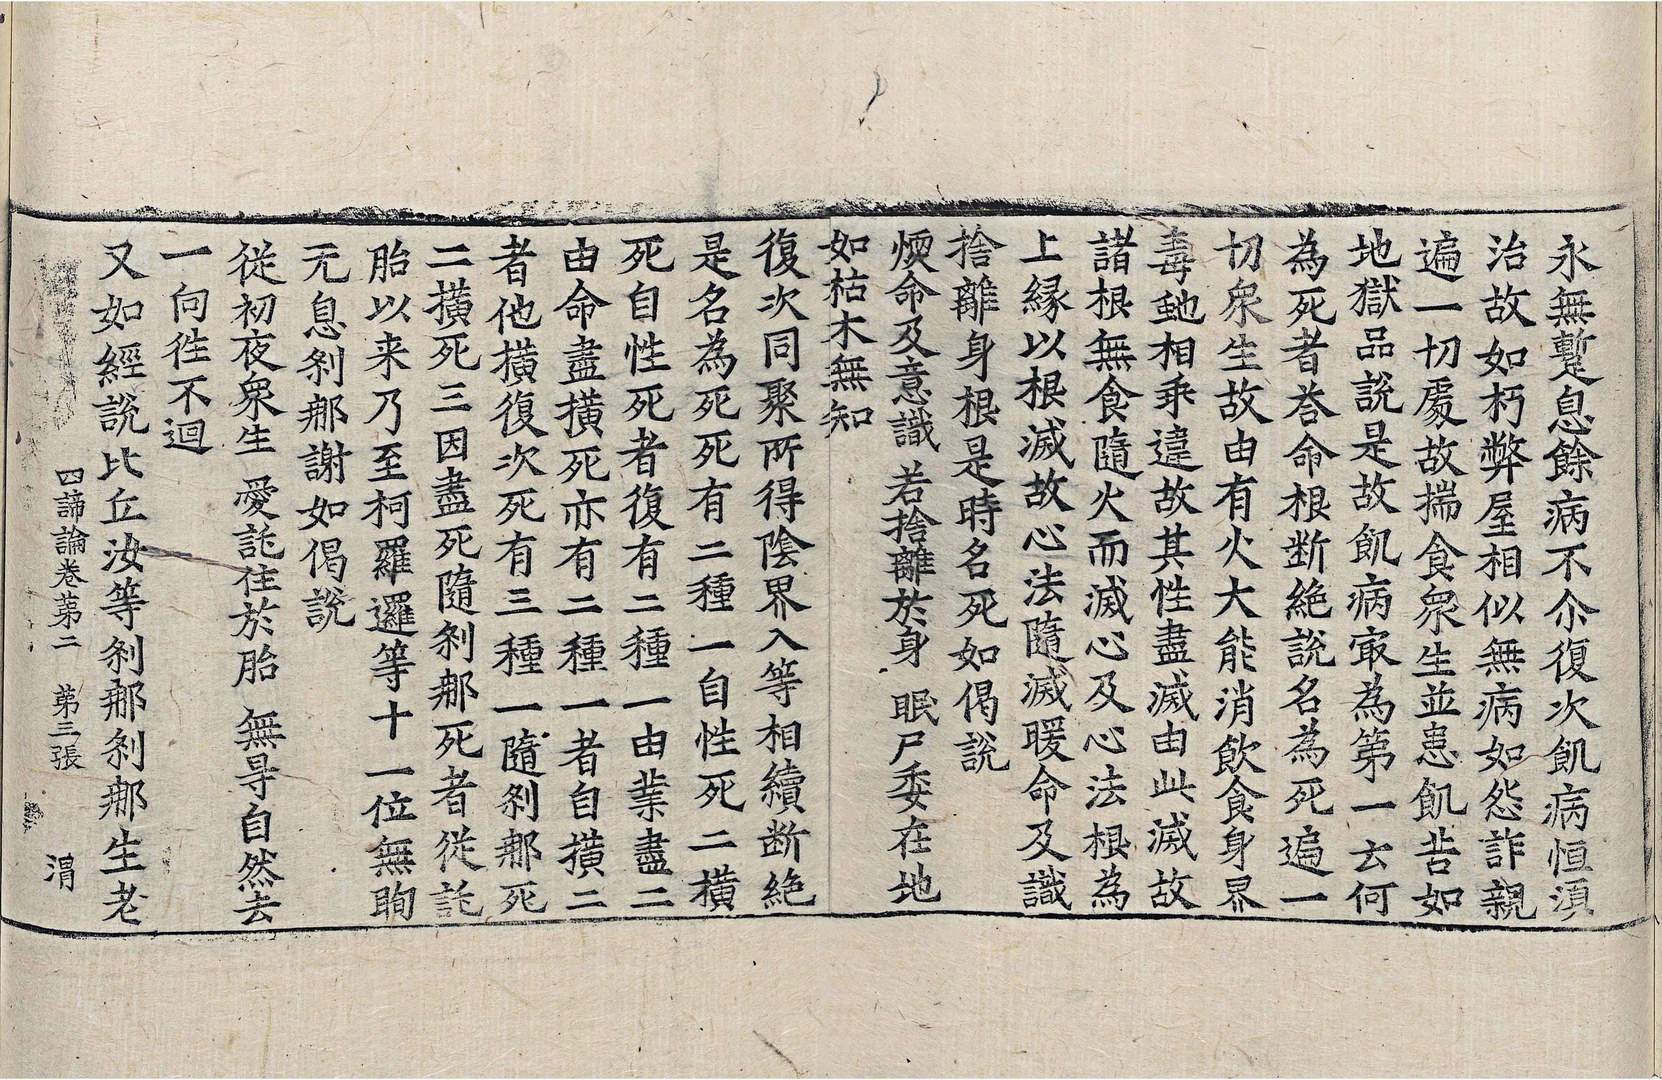 永無蹔息餘病不尒復次飢病恒湏
治故如朽弊屋相似無病如怨詐親
遍一切處故揣食衆生並患飢苦如
地獄品說是故飢病㝡為第一云何
為死者荅命根断絶說名為死遍一
切衆生故由有火大能消飲食身界
毒虵相乖違故其性盡滅由此滅故
諸根無食隨火而滅心及心法根為
上縁以根滅故心法隨滅暖命及識
捨離身根是時名死如偈說
煗命及意識 若捨離於身 眠尸委在地
如枯木無知
復次同聚所得陰界入等相續断絶
是名為死死有二種一自性死二橫
死自性死者復有二種一由業盡二
由命盡橫死亦有二種一者自橫二
者他橫復次死有三種一隨剎那死
二橫死三因盡死隨剎那死者從託
胎以来乃至柯羅邏等十一位無眴
无息剎那謝如偈說
從初夜衆生 愛託住於胎 無㝵自然去
一向徃不迴
又如經說比丘汝等剎那剎那生老
四諦論卷苐二 苐三張 渭